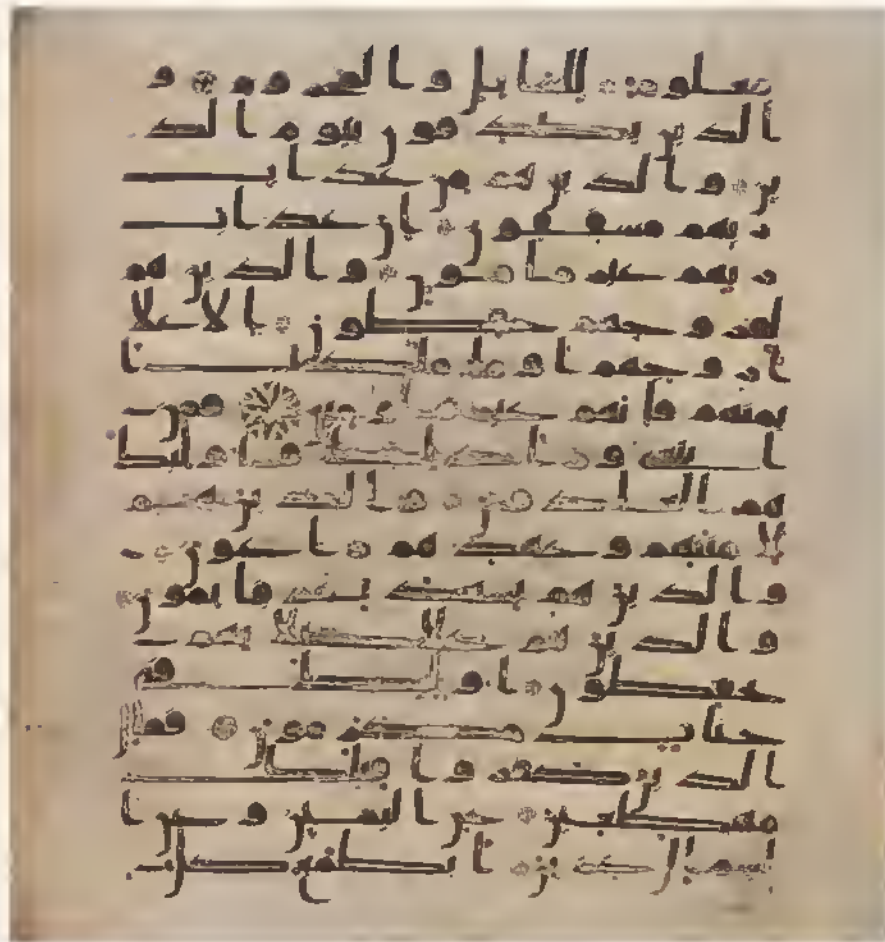 معلوم للسايل والمحروم و
الذين يصدقون بيوم الد
ين والذين هم من عذاب
ربهم مشفقون ان عذاب
ربهم غير مامون والذين هم
لفروجهم حفظون الا على
ازوجهم او ما ملكت ايما
نهم فانهم غير ملومين فمن
ابتغى ورا ذلك فاولئك
هم العادون والذين هم
لامنتهم وعهدهم راعون
والذين هم بشهدتهم قايمون
والذين هم على صلاتهم
يحفظون اولئك في
جنات مكرمون فمال
الذين كفروا قبلك
مهطعين عن اليمين وعن ا
لشمال عزين ايطمع كل